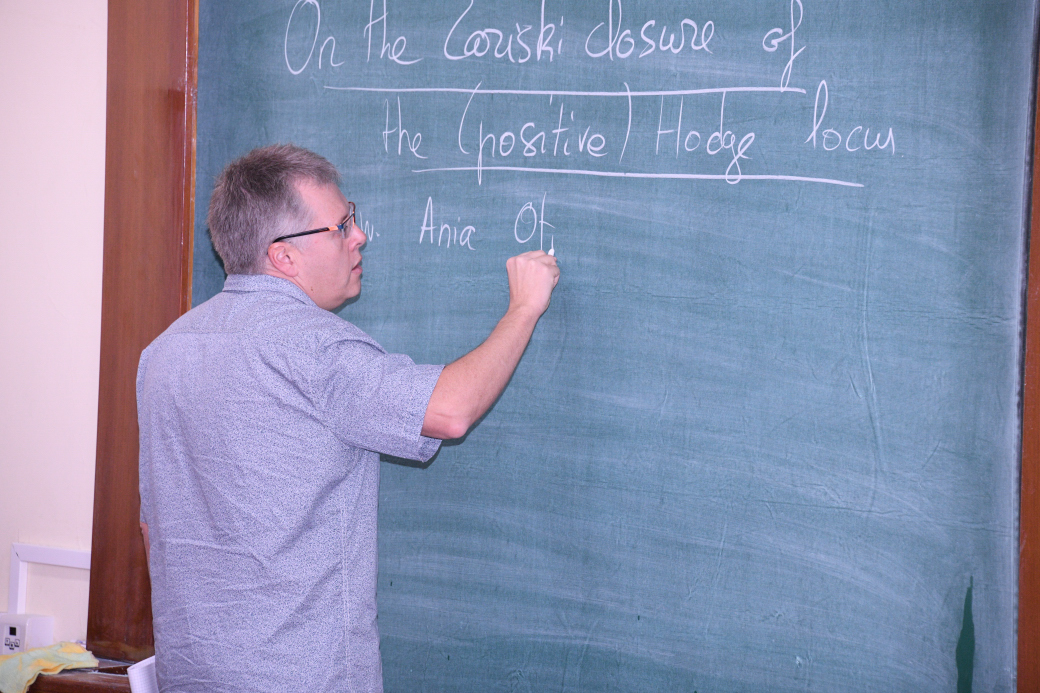 On the Zariski closure of
the (positive) Hodge locus
w. Ania Ot